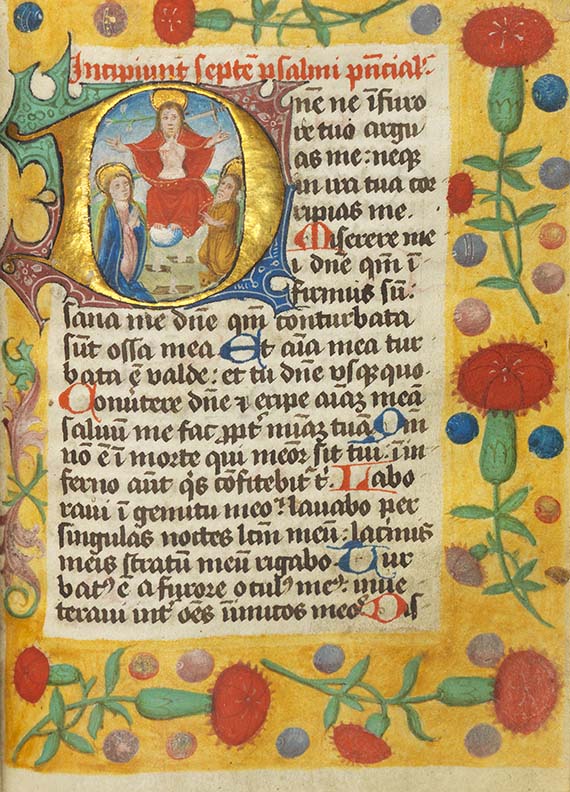 Incipiunt septē psalmi pn̄cial'
Dn̄e ne ī furo
re tuo argu
as me: neq
in ira tua cor
ripias me.
Miserere me
i dn̄e qm̄ ī
firmus sū:
sana me dn̄e qm̄ conturbata
sūt ossa mea Et aīa mea tur
bata ē valde: et tu dn̄e vsq quo.
Conūtere dn̄e ⁊ eripe aīaꝫ meā
saluum me fac ꝓpt̄ mīaꝫ tuā Qm̄
nō ē ī morte qui meor sit tui: ī in
ferno aūt q̄s cōfitebit' t̄ Labo
raui ī gemitu meo: lauabo per
singulas noctes lc̄m meū: lacrimis
meis stratū meū rigabo Tur
bat' ē a furore ocul' me': inue
teraui int̄ oēs inīmicos meo' Dis